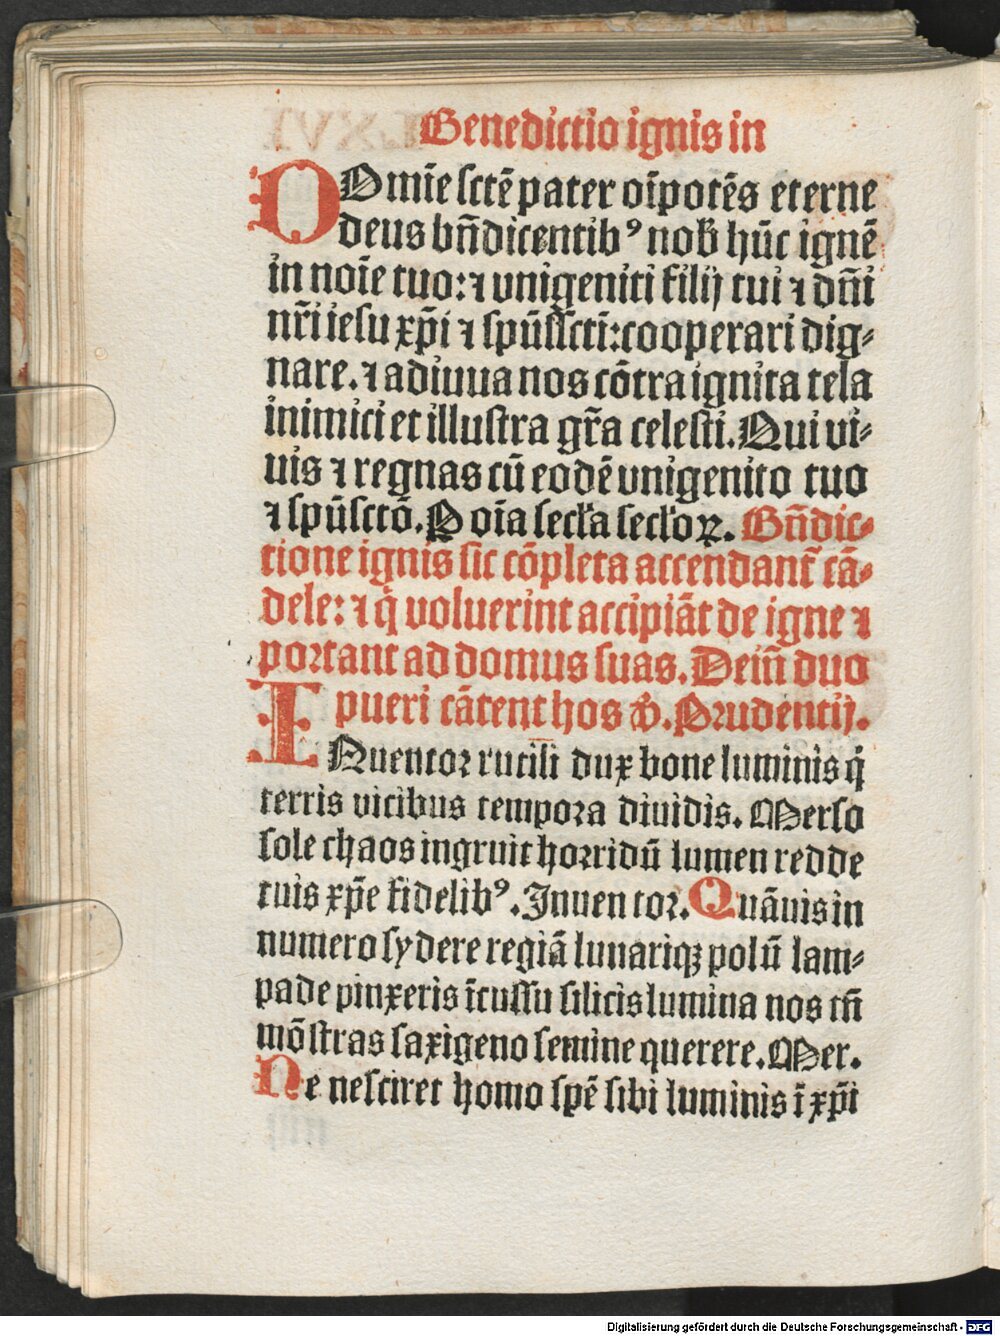 Benedictio ignis in
DOmīe sctē pater oīpotēs eterne
deus bn̄dicentibꝰ nob̄ hūc ignē
in noīe tuo: ⁊ unigeniti filij tui ⁊ dn̄i
nr̄i iesu xp̄i ⁊ spūssctī: cooperari dig⸗
nare. ⁊ adiuua nos cōtra ignita tela
inimici et illustra gr̄a celesti. Qui vi⸗
uis ⁊ regnas cū eodē vnigenito tuo
⁊ spūsctō. P oīa secła secłoꝝ. Bn̄dic⸗
tione ignis sic cōpleta accendant̄ cā⸗
dele: ⁊ q̄ voluerint accipiāt de igne ⁊
portant ad domus suas. Deīn̄ duo
pueri cātent hos v̄. Prudentij.
INuentor rutili dux bone luminis q̄
terris vicibus tempora diuidis. Merso
sole chaos ingruit horridū lumen redde
tuis xp̄e fidelibꝰ. Inuentor. Quāuis in
numero sydere regiā lunariqꝫ polū lam⸗
pade pinxeris īcussu silicis lumina nos tn̄
mōstras saxigeno semine querere. Mer.
Ne nesciret homo spē sibi luminis ī xp̄i
Digitalisierung gefördert durch die Deutsche Forschungsgemeinschaft - DFG